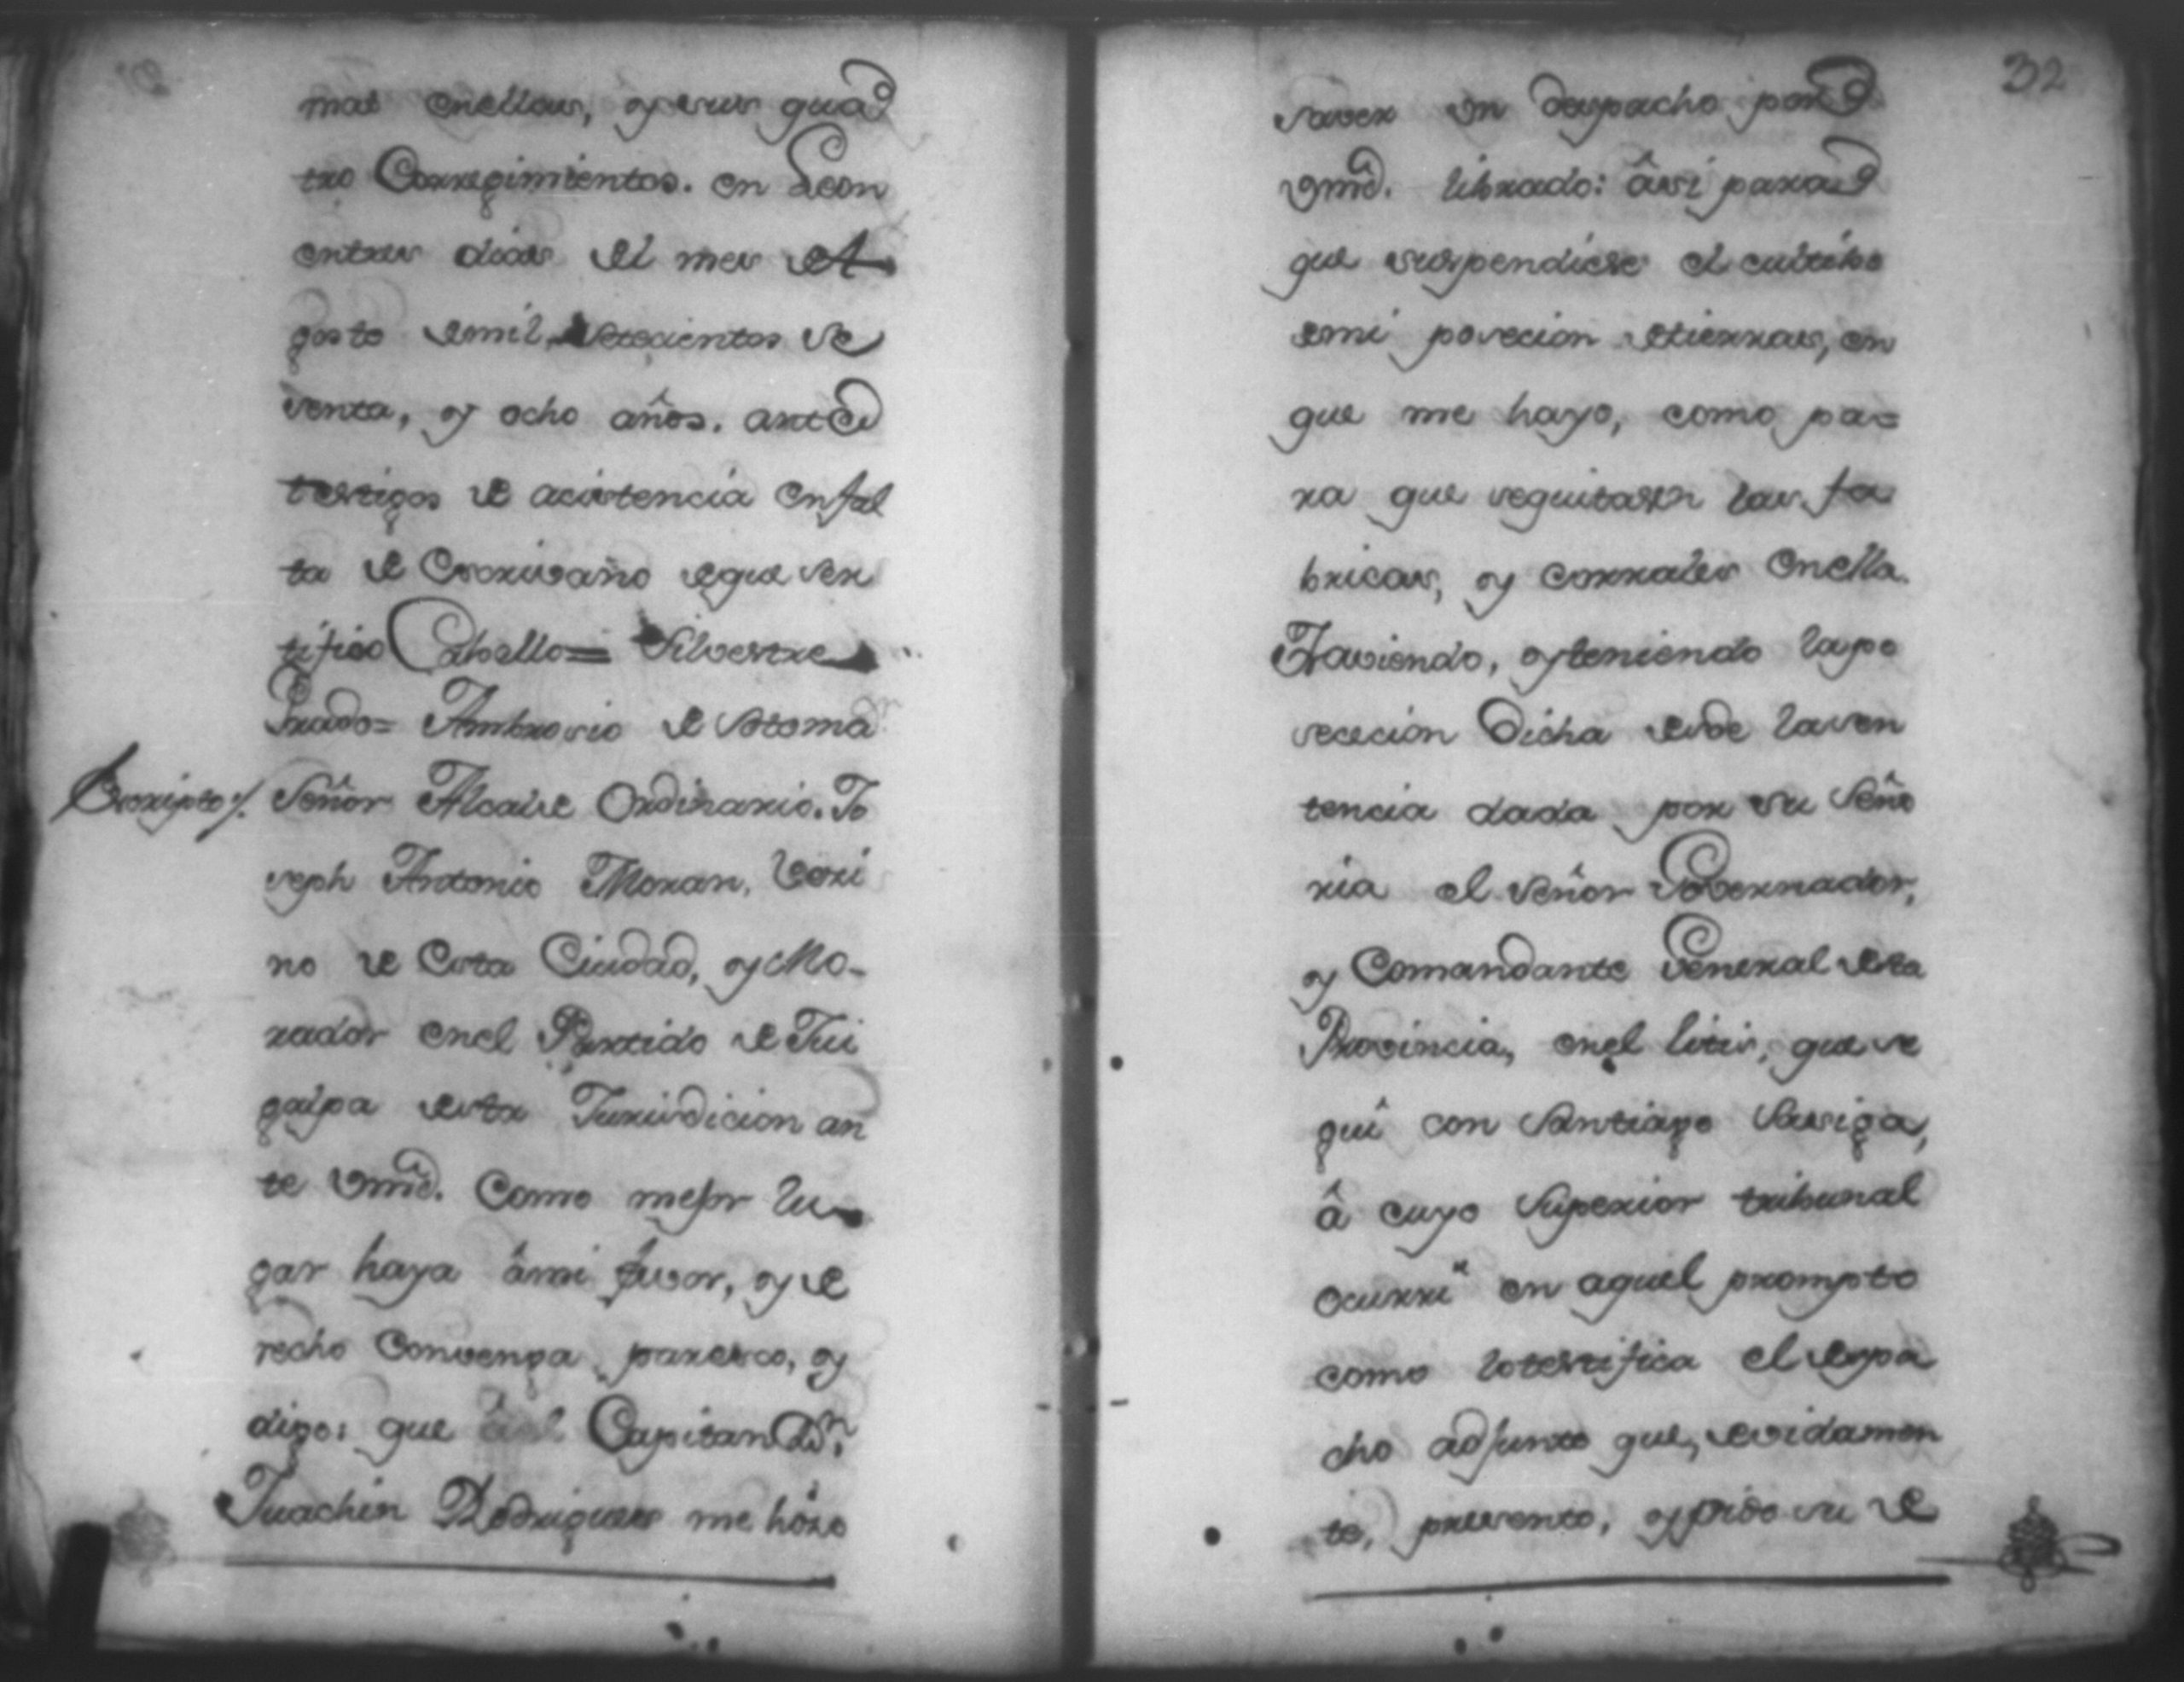 mas enellas, y sus qua
tro Corregimientos. en Leon
entres dias del mes de A
gosto demil, setecientos se
senta, y ocho años. ante
testigos de acistencia enfal
ta de Escrivano deque ser
tifico Cabello = Silvestre
Prado = Ambrosio de Sotoma
Escripto/. Señor Alcalde Ordinario. Jo
seph Antonio Moran, Veci
no de Esta Ciudad, y Mo-
rador enel Partido de Jui
galpa desta Jurisdicion an
te Vmd. Como mejor lu
gar haya âmi favor, y de
recho Convenga paresco, y
digo: que el Capitan Dn.
Juachin Rodrigues me hizo
32
saver Un despacho por
Vmd. librado: âsi para
que suspendiese el cultibo
demi posecion detierras, en
que me hayo, como pa=
ra que sequitasen las fa
bricas, y corrales Enella.
Haviendo, y teniendo la po
sececion Dicha desde la sen
tencia dada por su Seño
ria el Señor Governador,
y Comandante General desta
Provincia, enel litis, que se
guî con Santiago Sasiga,
â cuyo Superior tribunal
ocurri en aquel prompto
como lotestifica el despa
cho adjunto que, devidamen
te, presento, y pido su de